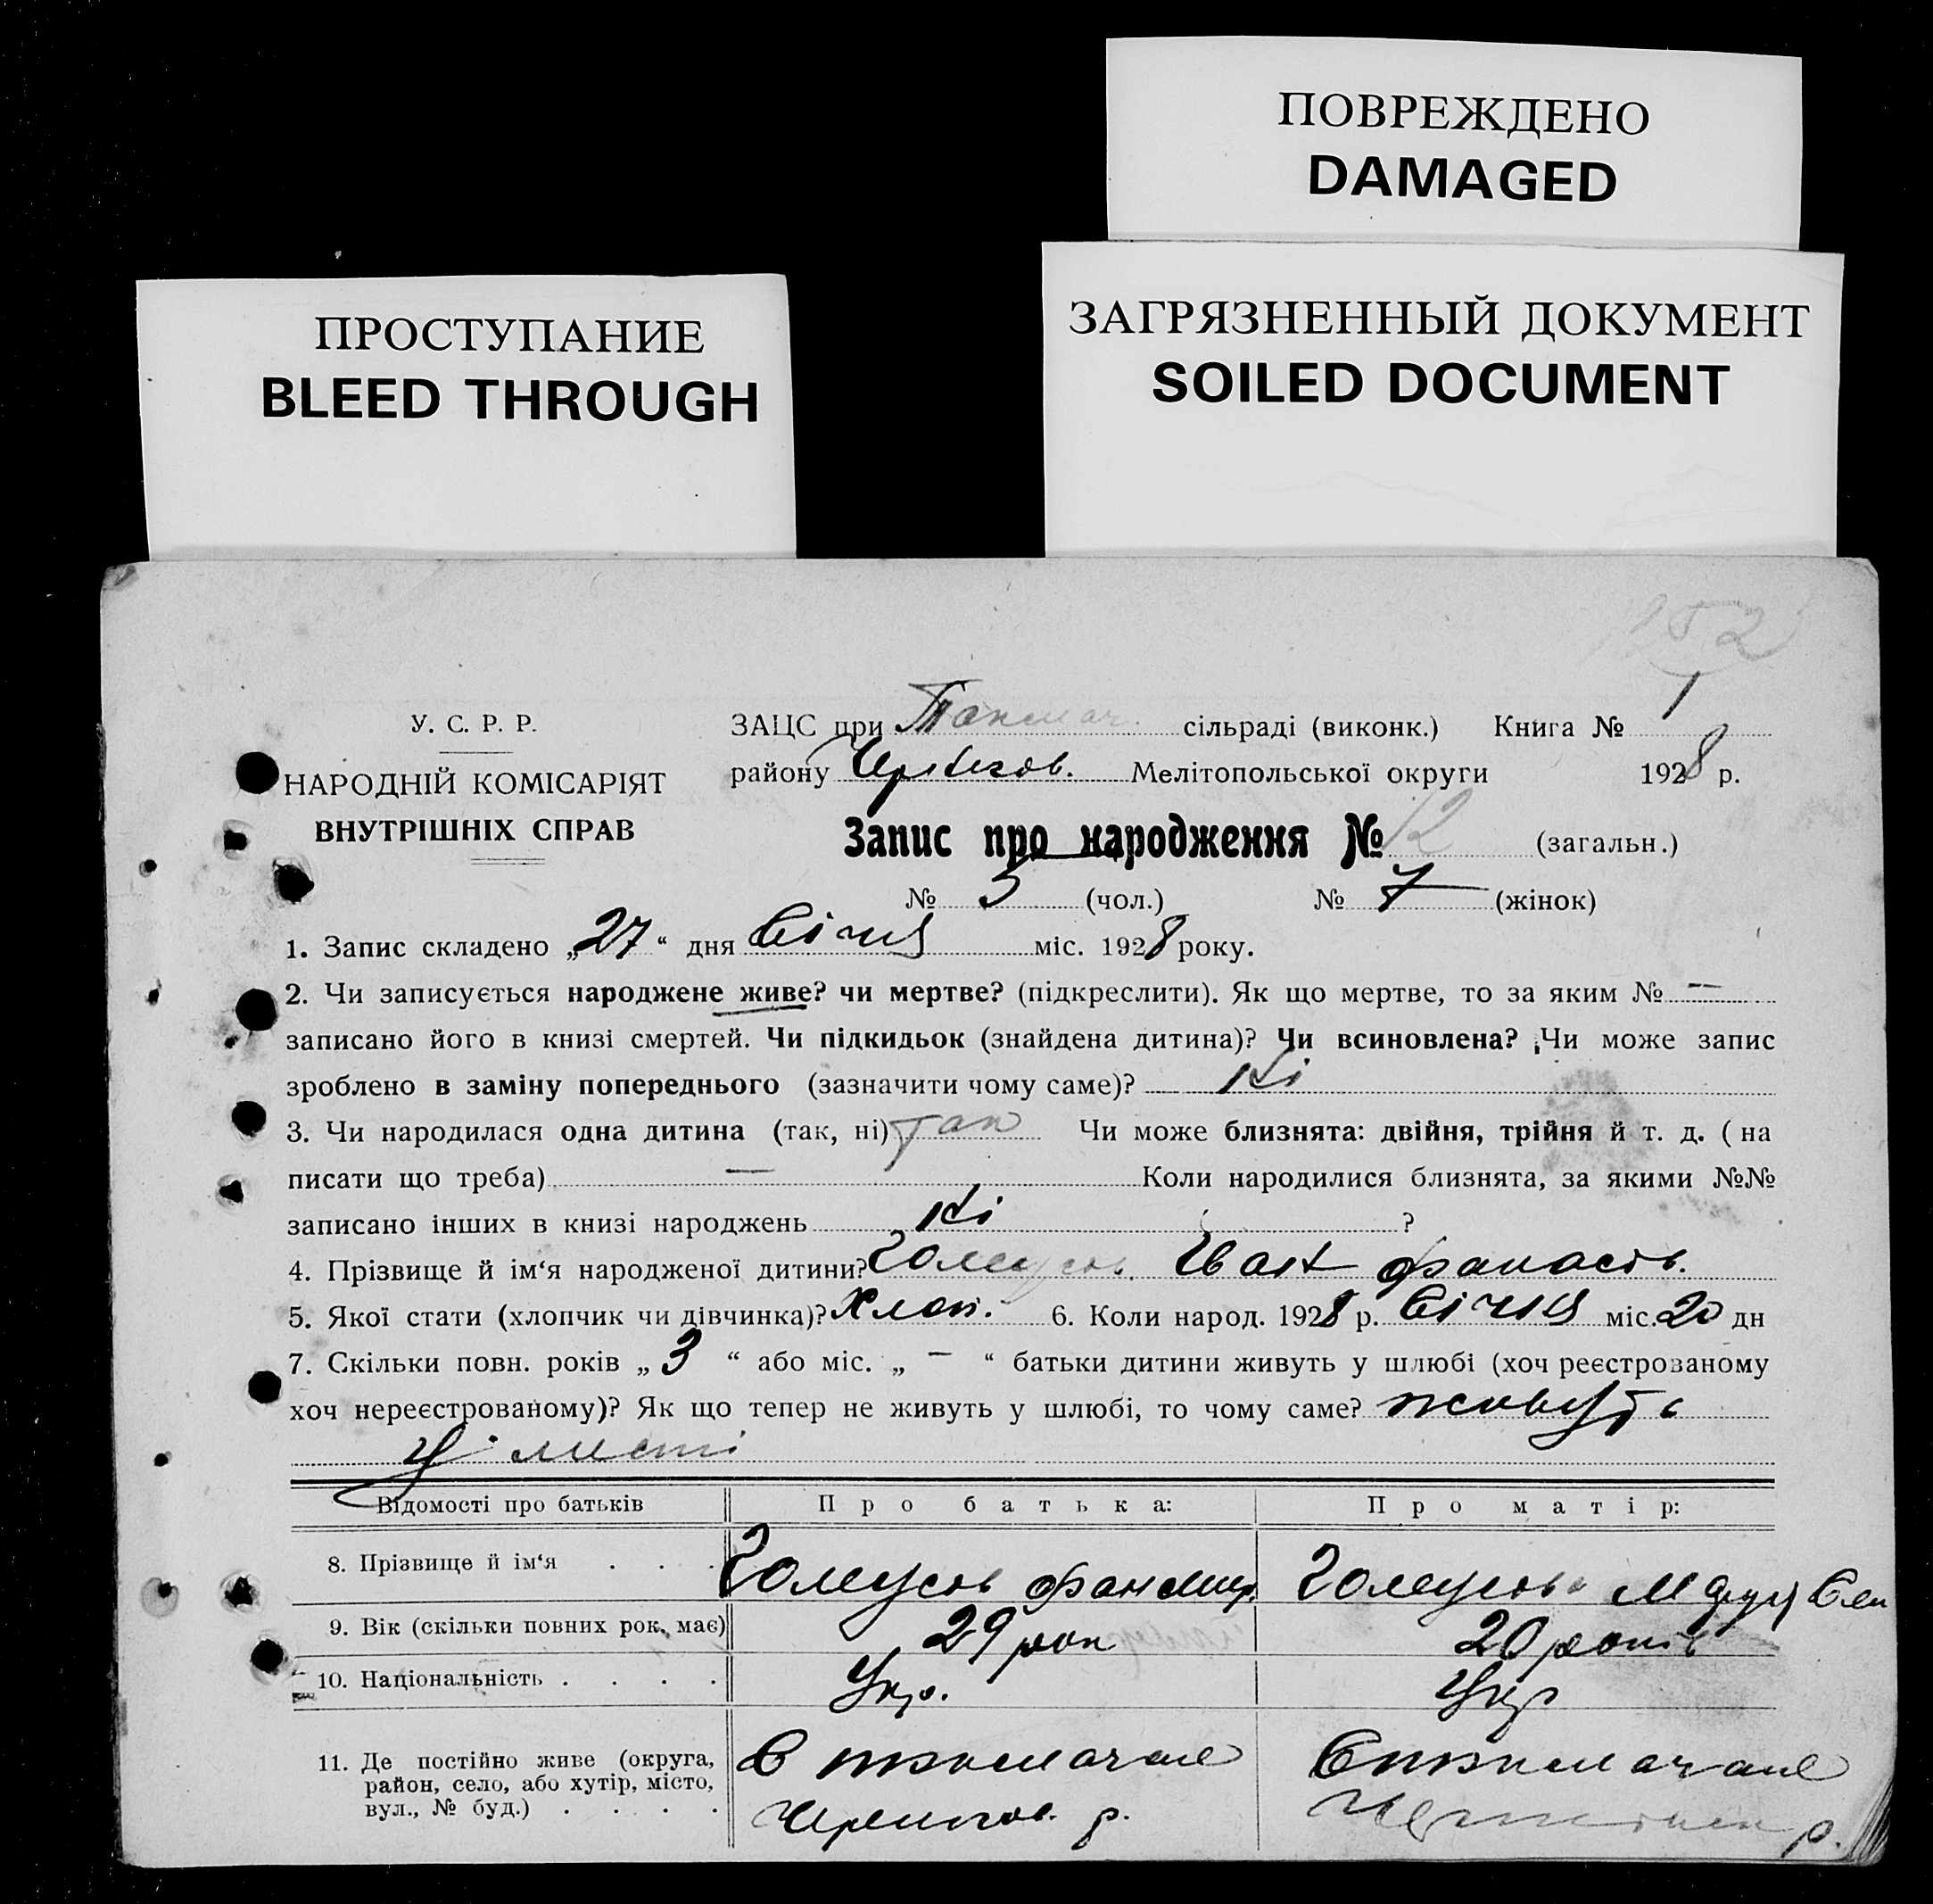 ПОВРЕЖДЕНО
DAMAGED
ПРОСТУПАНИЕ
BLEED THROUGH
ЗАГРЯЗНЕННЫЙ ДОКУМЕНТ
SOILED DOCUMENT
252
У. С. Р. Р.
НАРОДНІЙ КОМІСАРІЯТ
ВНУТРІШНІХ СПРАВ
ЗАЦС при Токмач. сільраді (виконк.) Книга № 1
району Чернігов. Мелітопольської округи 1928 р.
Запис про народження № 12 (загальн.)
№ 5 (чол.) № 7 (жінок)
1. Запис складено „27“ дня Січня міс. 1928 року.
2. Чи записується народжене живе? чи мертве? (підкреслити). Як що мертве, то за яким № —
записано його в книзі смертей. Чи підкидьок (знайдена дитина)? Чи всиновлена? Чи може запис
зроблено в заміну попереднього (зазначити чому саме)? Ні
3. Чи народилася одна дитина (так, ні) так Чи може близнята: двійня, трійня й т. д. ( на
писати що треба) — Коли народилися близнята, за якими №№
записано інших в книзі народжень Ні ?
4. Прізвище й ім‘я народженої дитини? Іван
5. Якої стати (хлопчик чи дівчинка)? Хлоп. 6. Коли народ. 1928 р. Січня міс. 20 дн
7. Скільки повн. років „ 3 “ або міс. „ — “ батьки дитини живуть у шлюбі (хоч реєстрованому
хоч нереєстрованому)? Як що тепер не живуть у шлюбі, то чому саме? живуть
у місті
Відомості про батьків Про батька: Про матір:
8. Прізвище й ім‘я . . .
9. Вік (скільки повних рок. має) 29 рок 20 років
10. Національність . . . . Укр. Укр
11. Де постійно живе (округа,
район, село, або хутір, місто,
вул., № буд.) . . . .
С Токмачане
Чернігов. р.
С Токмачане
р.